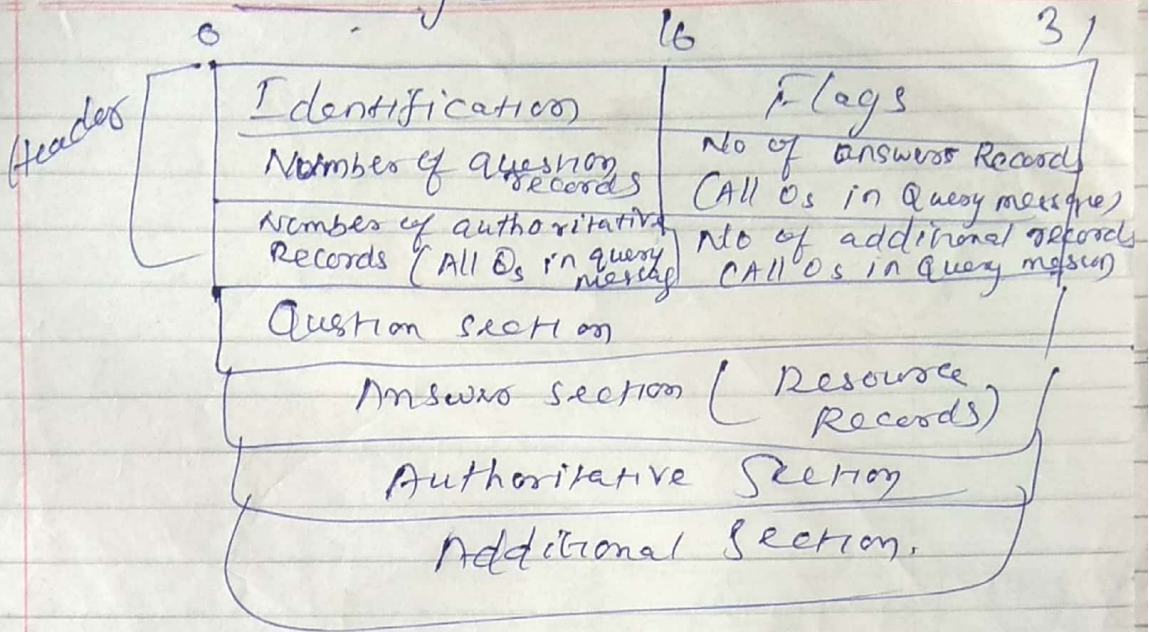 0 16 31
Header
Identification
Flags
Number of question
records
No of answers Records
(All 0s in Query message)
Number of authoritative
Records (All 0s in query
message
No of additional records
(All 0s in Query messag)
Qustion section
Answer section (Resource
Records)
Authoritative Section
Additional Section.